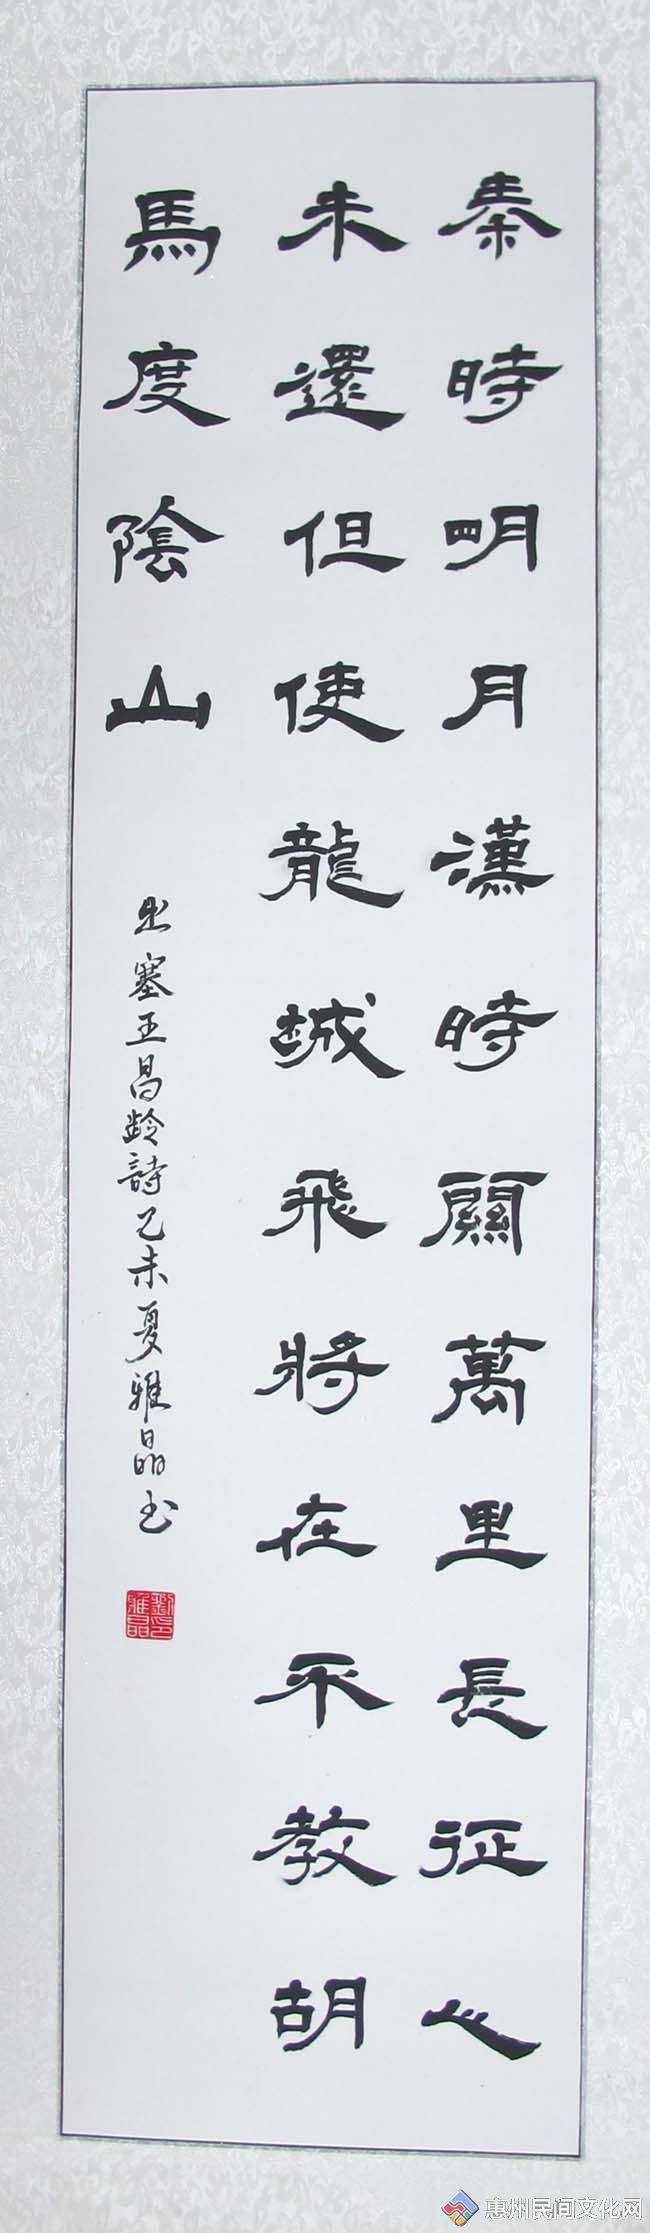 秦時明月漢時關萬里長征人
未還但使龍城飛將在不教胡
馬度陰山
出塞王昌齡詩乙未夏雅晶书
劉印雅晶
惠州民间文化网